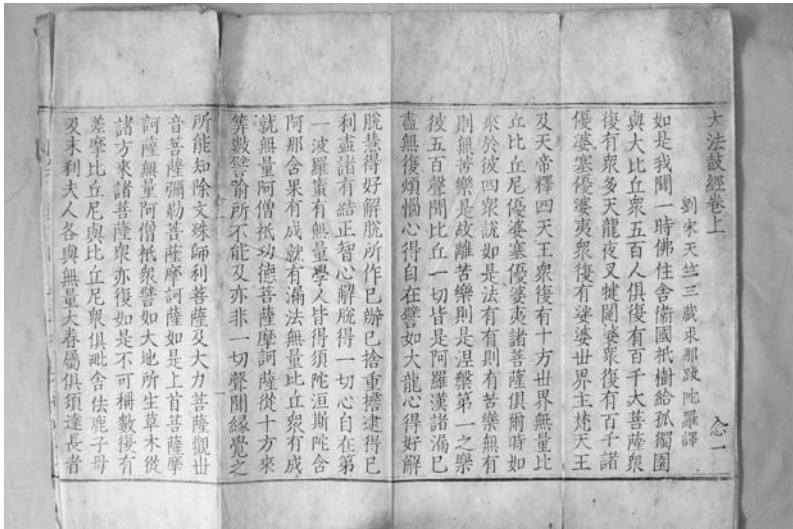 大法鼓經卷上
念一
劉宋天竺三藏求那跋陀羅譯
如是我聞一時佛住舍衛國祇樹給孤獨園
與大比丘衆五百人俱復有百千大菩薩衆
復有衆多天龍夜叉犍闥婆衆復有百千諸
優婆塞優婆夷衆復有娑婆世界主梵天王
及天帝釋四天王衆復有十方世界無量比
丘比丘尼優婆塞優婆夷諸菩薩俱爾時如
來於彼四衆說如是法有有則有苦樂無有
則無苦樂是故離苦樂則是涅槃第一之樂
彼五百聲聞比丘一切皆是阿羅漢諸漏已
盡無復煩惱心得自在譬如大龍心得好解
脫慧得好解脫所作已辦已捨重擔逮得已
利盡諸有結正智心解脫得一切心自在第
一波羅蜜有無量學人皆得須陀洹斯陀含
阿那含果有成就有漏法無量比丘衆有成
就無量阿僧祇功德菩薩摩訶薩從十方來
筭數譬喻所不能及亦非一切聲聞緣覺之
所能知除文殊師利菩薩及大力菩薩觀世
音菩薩彌勒菩薩摩訶薩如是上首菩薩摩
訶薩無量阿僧祇衆譬如大地所生草木從
諸方來諸菩薩衆亦復如是不可稱數復有
差摩比丘尼與比丘尼衆俱毗舍佉鹿子母
及末利夫人各與無量大眷屬俱須達長者